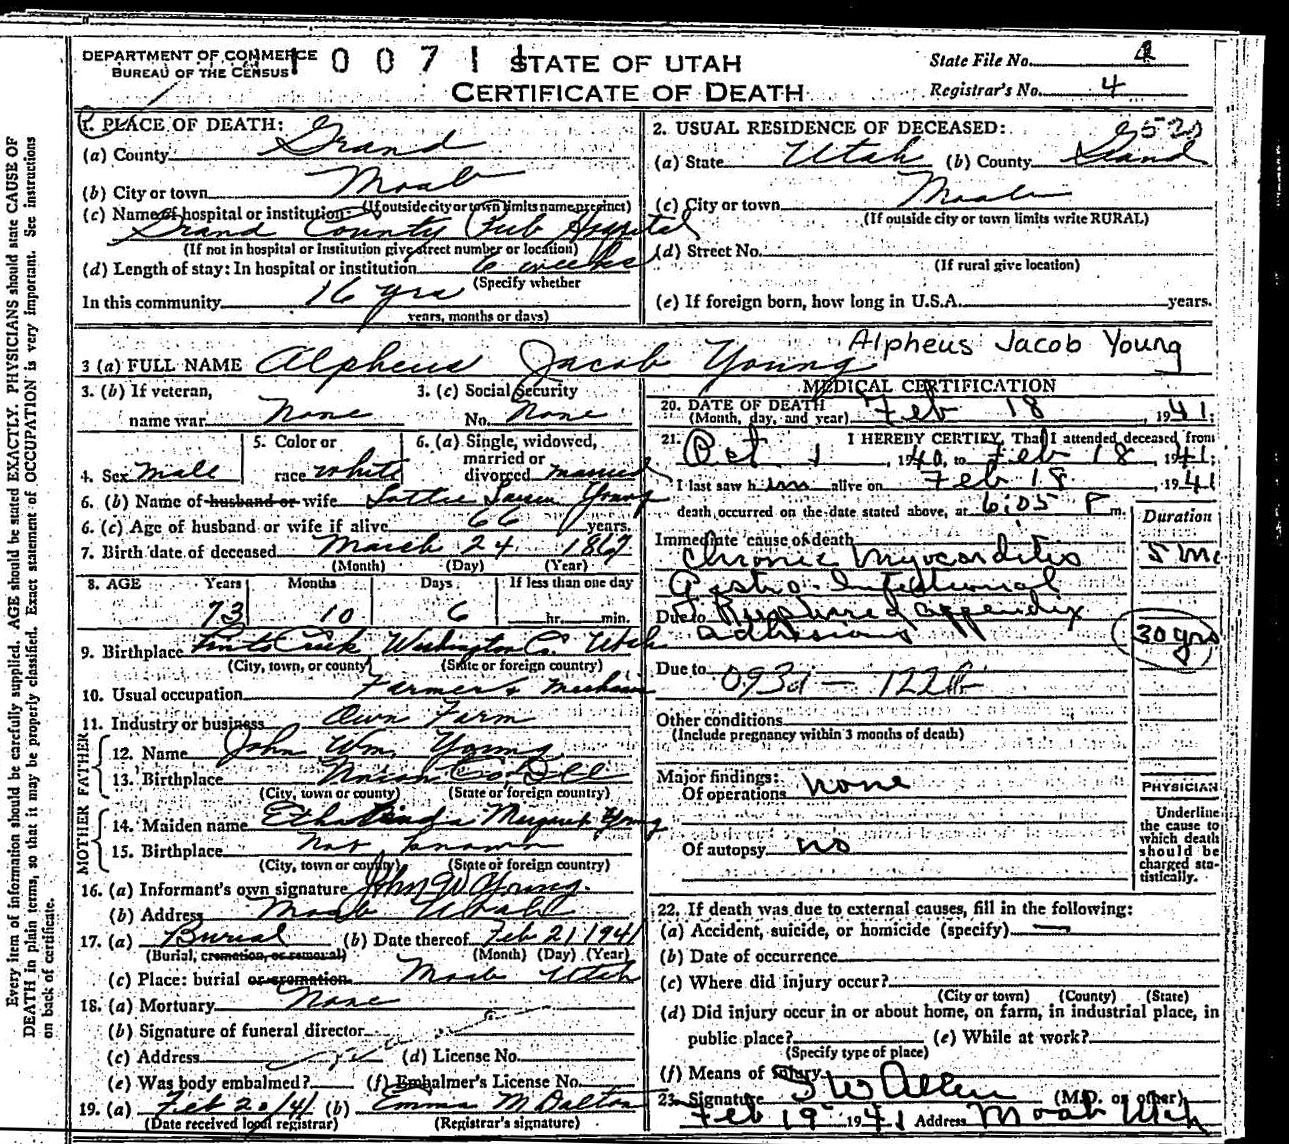 DEPARTMENT OF COMMERCE
BUREAU OF THE CENSUS
1 0 0 7 1 1
STATE OF UTAH
CERTIFICATE OF DEATH
State File No. 4
Registrar's No. 4
1. PLACE OF DEATH:
(a) County Grand
(b) City or town Moab
(If outside city or town limits name precinct)
(c) Name of hospital or institution:
Grand County Pub Hospital
(If not in hospital or institution give street number or location)
(d) Length of stay: In hospital or institution 6 weeks
(Specify whether
In this community 16 yrs
years, months or days)
2. USUAL RESIDENCE OF DECEASED:
(a) State Utah (b) County Grand
(c) City or town Moab
(If outside city or town limits write RURAL)
(d) Street No.
(If rural give location)
(e) If foreign born, how long in U.S.A. years.
3 (a) FULL NAME Alpheus Jacob Young
Alpheus Jacob Young
3. (b) If veteran,
name war None
3. (c) Social Security
No. None
4. Sex Male
5. Color or
race white
6. (a) Single, widowed,
married or
divorced married
6. (b) Name of husband or wife Lottie Young
6. (c) Age of husband or wife if alive 66 years.
7. Birth date of deceased March 24 1867
(Month) (Day) (Year)
8. AGE Years Months Days If less than one day
73 10 6 hr. min.
9. Birthplace Creek Washington Co. Utah
(City, town, or county) (State or foreign country)
10. Usual occupation Farmer & Mechanic
11. Industry or business Own Farm
FATHER
12. Name John Wm. Young
13. Birthplace
(City, town or county) (State or foreign country)
MOTHER
14. Maiden name Ethalinda Margaret Young
15. Birthplace Not known
(City, town or county) (State or foreign country)
16. (a) Informant's own signature John W Young.
(b) Address Moab Utah
17. (a) Burial (b) Date thereof Feb 21 1941
(Burial, cremation, or removal) (Month) (Day) (Year)
(c) Place: burial or cremation Moab Utah
18. (a) Mortuary None
(b) Signature of funeral director
(c) Address (d) License No.
(e) Was body embalmed? (f) Embalmer's License No.
19. (a) Feb 20/41 (b) Emma M Dalton
(Date received local registrar) (Registrar's signature)
MEDICAL CERTIFICATION
20. DATE OF DEATH
(Month, day, and year) Feb 18 1941;
21. I HEREBY CERTIFY, That I attended deceased from
Oct 1, 1940, to Feb 18, 1941;
I last saw him alive on Feb 18, 1941
death occurred on the date stated above, at 6:05 P m.
Duration
Immediate cause of death
Chronic Myocarditis 5 mo
Gastro-Intestinal
Due to Ruptured appendix
adhesions 30 yrs
Due to 093d — 122
Other conditions
(Include pregnancy within 3 months of death)
Major findings:
Of operations none
Of autopsy no
PHYSICIAN
Underline
the cause to
which death
should be
charged sta-
tistically.
22. If death was due to external causes, fill in the following:
(a) Accident, suicide, or homicide (specify) —
(b) Date of occurrence
(c) Where did injury occur?
(City or town) (County) (State)
(d) Did injury occur in or about home, on farm, in industrial place, in
public place? (e) While at work?
(Specify type of place)
(f) Means of injury
23. Signature S W Allen (M.D. or other)
Feb 19 1941 Address Moab Utah
Every item of information should be carefully supplied. AGE should be stated EXACTLY. PHYSICIANS should state CAUSE OF
DEATH in plain terms, so that it may be properly classified. Exact statement of OCCUPATION is very important. See instructions
on back of certificate.